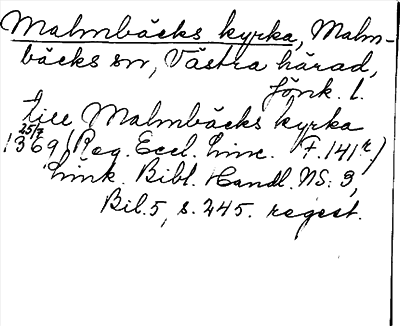 Malmbäcks kyrka, Malm-
bäcks sn, Västra härad,
Jönk. l.
till Malmbäcks kyrka
25/7
1369 (Reg. Eccl. Linc. F. 141 r.)
Link. Bibl. Handl. NS: 3,
Bil. 5, s. 245. regest.